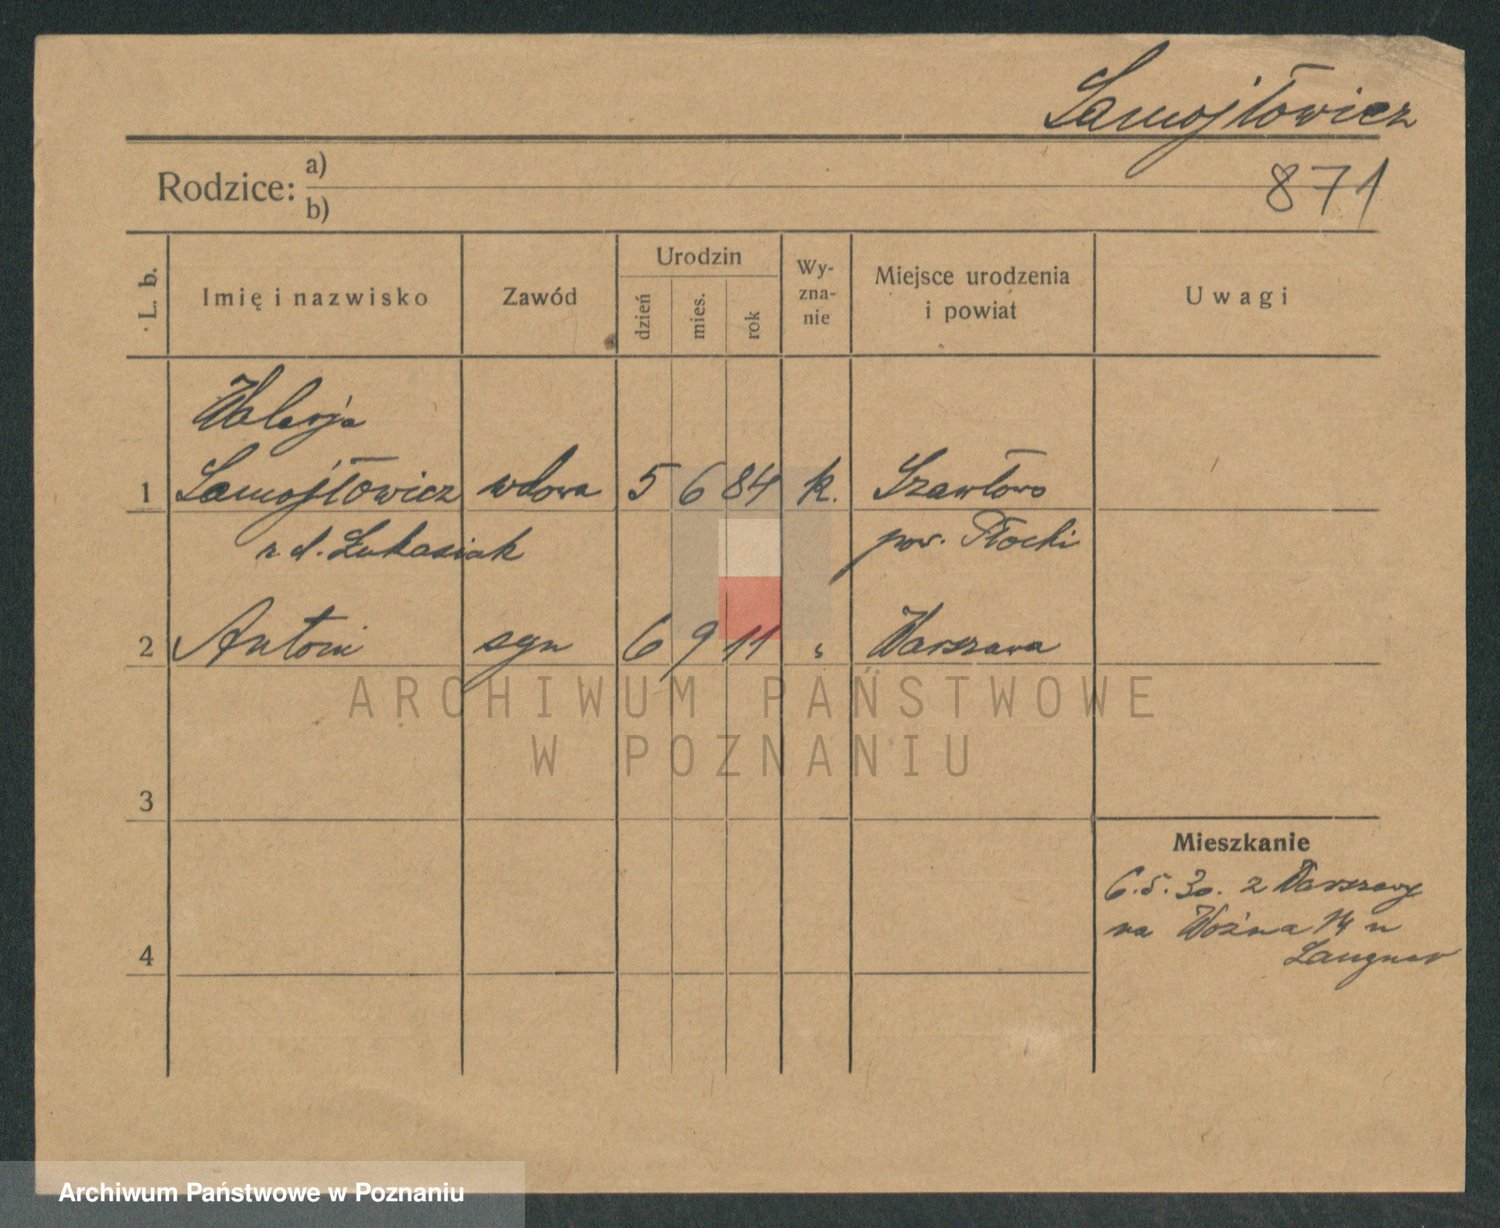 Samojłowicz
871
Rodzice: a)
b)
L. b.
Imię i nazwisko
Zawód
Urodzin
dzień
mies.
rok
Wy-
zna-
nie
Miejsce urodzenia
i powiat
Uwagi
Walerja
1 Samojłowicz wdowa 5 6 84 k. Szawłowo
z d. Łukasiak pow. Płocki
2 Antoni syn 6 9 11 " Warszawa
ARCHIWUM PAŃSTWOWE
W POZNANIU
3
Mieszkanie
6.5.30. z Warszawy
na Woźna 14 u
4
Langner
Archiwum Państwowe w Poznaniu